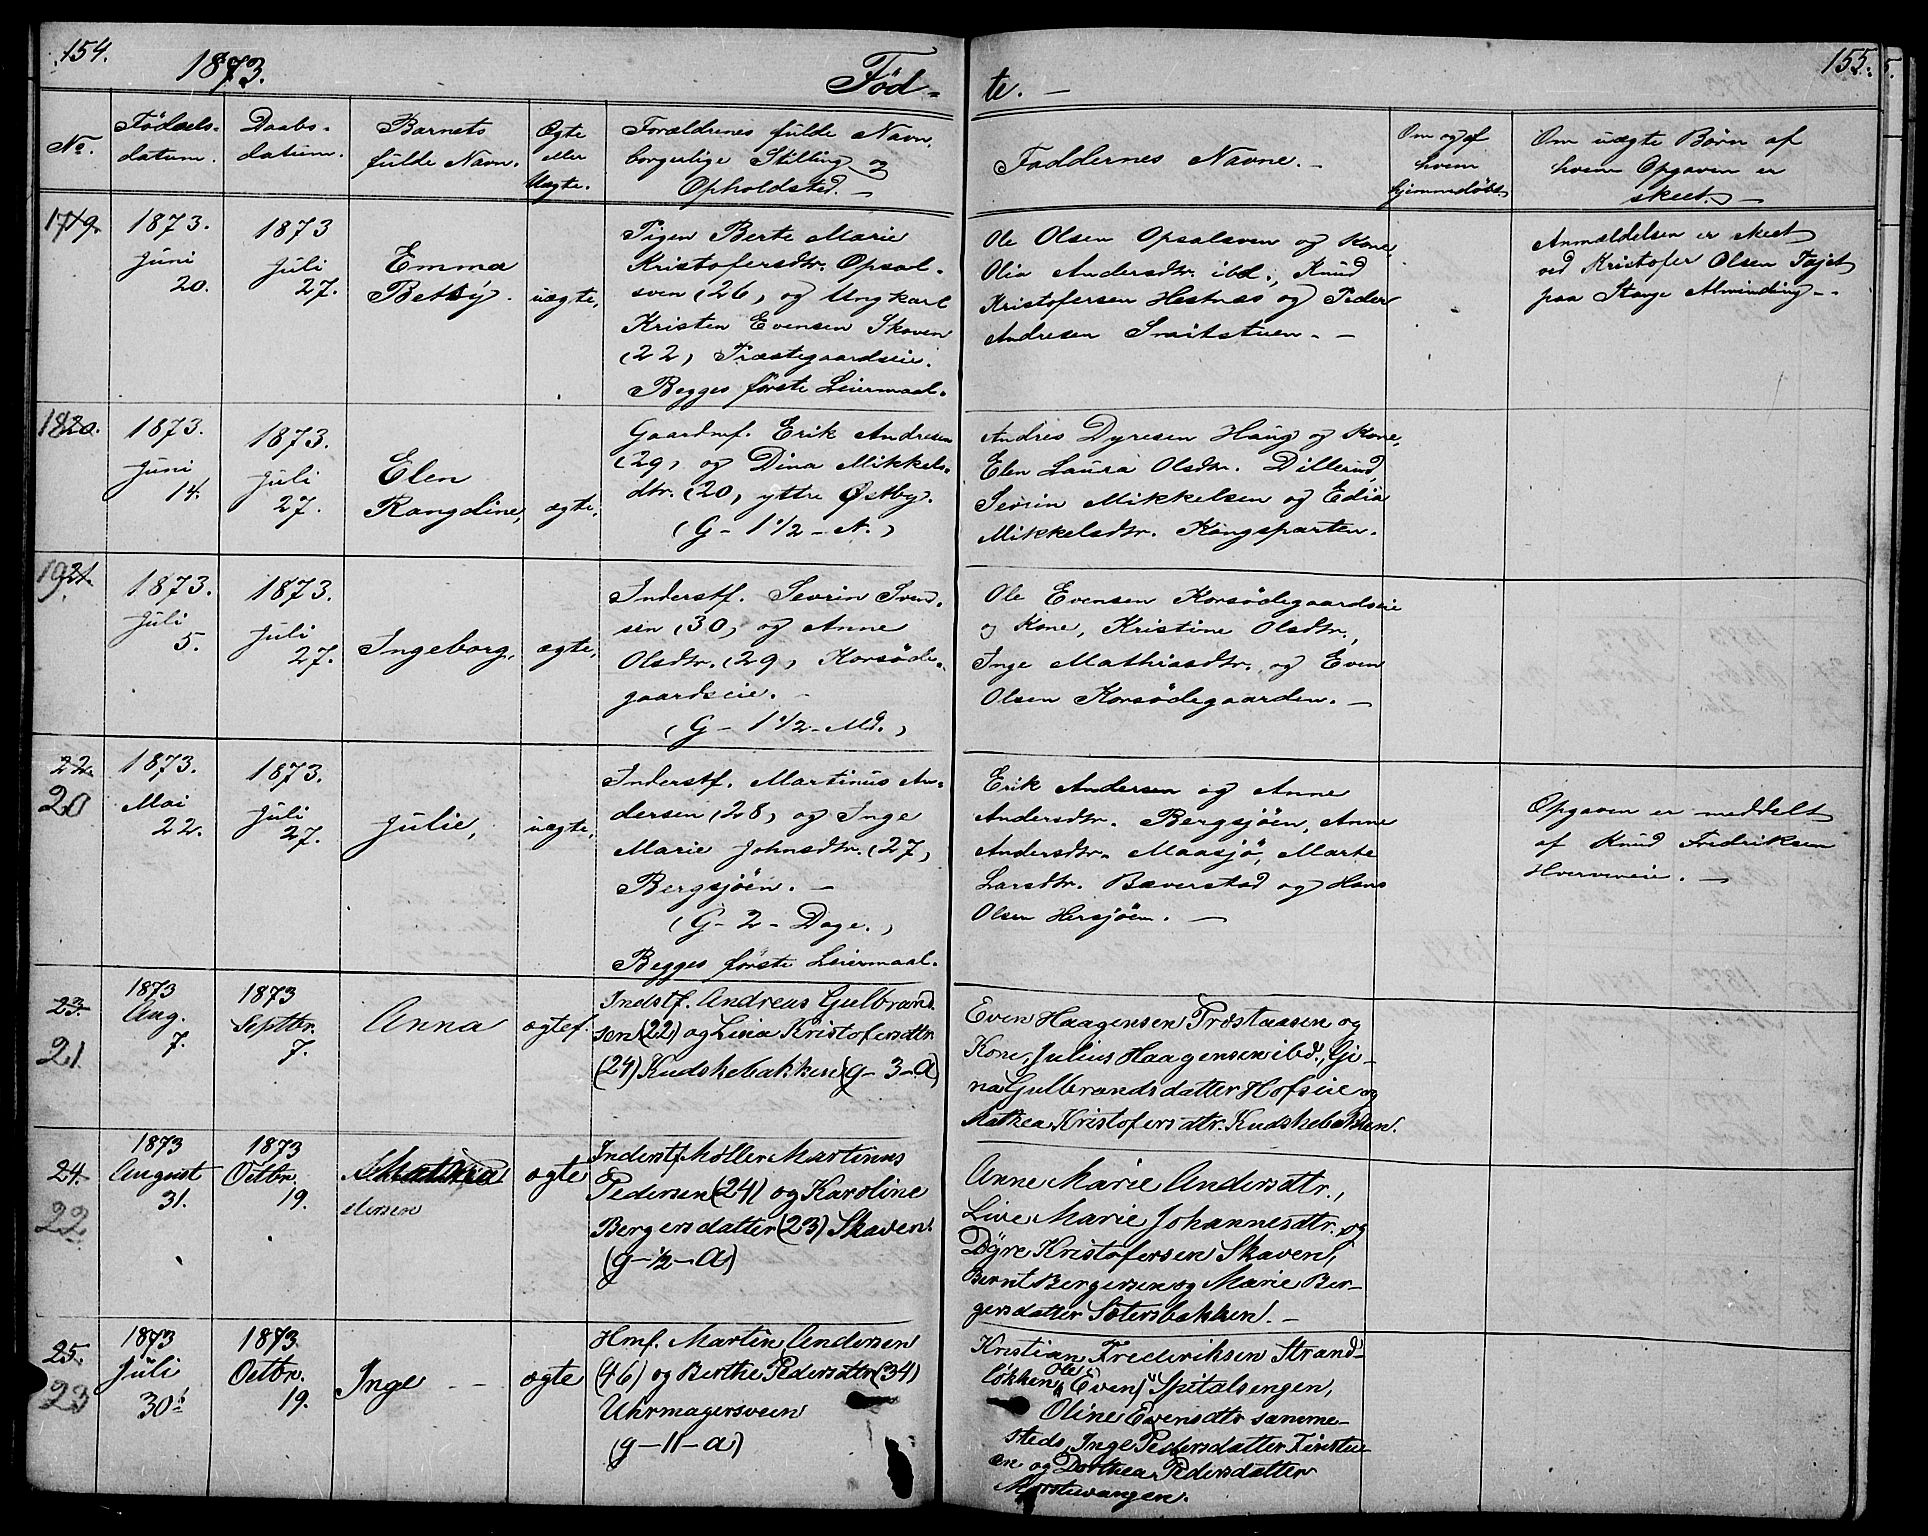 154.
1873.
Fød-
te. —
155.
No.
Fødsels-
datum.
Daabs-
datum.
Barnets
fulde Navn.
Ægte
eller
Uægte.
Forældrenes fulde Navn,
borgerlige Stilling og
Opholdsted. —
Faddernes Navne. —
Om og af
hvem
hjemmedøbt
Om uægte Børn af
hvem Opgaven er
skeet. —
17 19.
1873.
Juni
20.
1873
Juli
27.
Emma
Betsy.
uægte,
Pigen Berte Marie
Kristofersdtr. Opsal-
sven (26) og Ungkarl
Kristen Evensen Skoven
(22) Præstegaardseie.
Begges første Leiermaal.
Ole Olsen Opsalsven og Kone,
Olia Andersdtr. ibd., Knud
Kristofersen Hestnes og Peder
Andresen Snitstuen. —
Anmeldelsen er skeet
ved Kristofer Olsen Fajet
paa Stange Alminding. —
18 20.
1873.
Juni
14.
1873.
Juli
27.
Elen
Rangdine,
ægte,
Gaardmf. Erik Andresen
(29) og Dina Mikkels-
dtr. (20) yttre Østby.
(G - 1 1/2 - A.)
Andres Dyresen Haug og Kone,
Elen Laura Olsdtr. Dillerud,
Sevrin Mikkelsen og Edia
Mikkelsdtr. Kongsparten.
19 21.
1873.
Juli
5.
1873.
Juli
27.
Ingeborg,
ægte,
Inderstf. Sevrin Svend-
sen (30) og Anne
Olsdtr. (29) Korsøde-
gaardseie. —
(G - 1 1/2 - Md.)
Ole Evensen Korsødegaardseie
og Kone, Kristine Olsdtr.,
Inge Mathiasdtr. og Even
Olsen Korsødegaarden. —
22.
20
1873.
Mai
22.
1873.
Juli
27.
Julie,
uægte,
Inderstf. Martinus An-
dersen (28) og Inge
Marie Johnsdtr. (27)
Bergsjøen. —
(G - 2 - Dage.)
Begges første Leiermaal.
Erik Andersen og Anne
Andersdtr. Bergsjøen, Anne
Andersdtr. Maasjø, Marte
Larsdtr. Bæverstad og Hans
Olsen Hersjøen. —
Opgaven er meddelt
af Knud Fredriksen
Hverveneie. —
23.
21.
1873
Aug.
7.
1873
Septbr.
7.
Anna
ægtef.
Indstf. Andreas Gulbrand-
sen (22) og Lisia Kristofersdtr
(24) Kudskebakken (g - 3 - a)
Even Haagensen Trøstaasen og
Kone, Julius Haagensen ibd., Gi-
na Gulbrandsdatter Hofseie og
Mathea Kristofersdtr. Kudskebakken.
24.
22.
1873
August
31.
1873
Octbr.
19.
ægte
Inderstf. Møller Martinus
Pedersen (24) og Karoline
Bergersdatter (23) Skaven.
(g - 1/2 - a)
Anne Marie Andersdtr.,
Live Marie Johannesdtr. og
Dyre Kristofersen Skaven,
Bernt Bergersen og Marie Ber-
gersdatter Sætersbakken. —
25.
23
1873
Juli
30.
1873.
Octbr.
19.
Inge —
ægte
Hmf. Martin Andersen
(46) og Berthe Pedersdtr (34)
Uhrmagersveen
(g - 11 - a)
Kristian Frederiksen Strand-
løkken, Ole Even Spitalsengen,
Oline Evensdtr samme-
steds, Inge Pedersdatter Finstu-
en og Dorthea Pedersdatter
Morstuvangen.